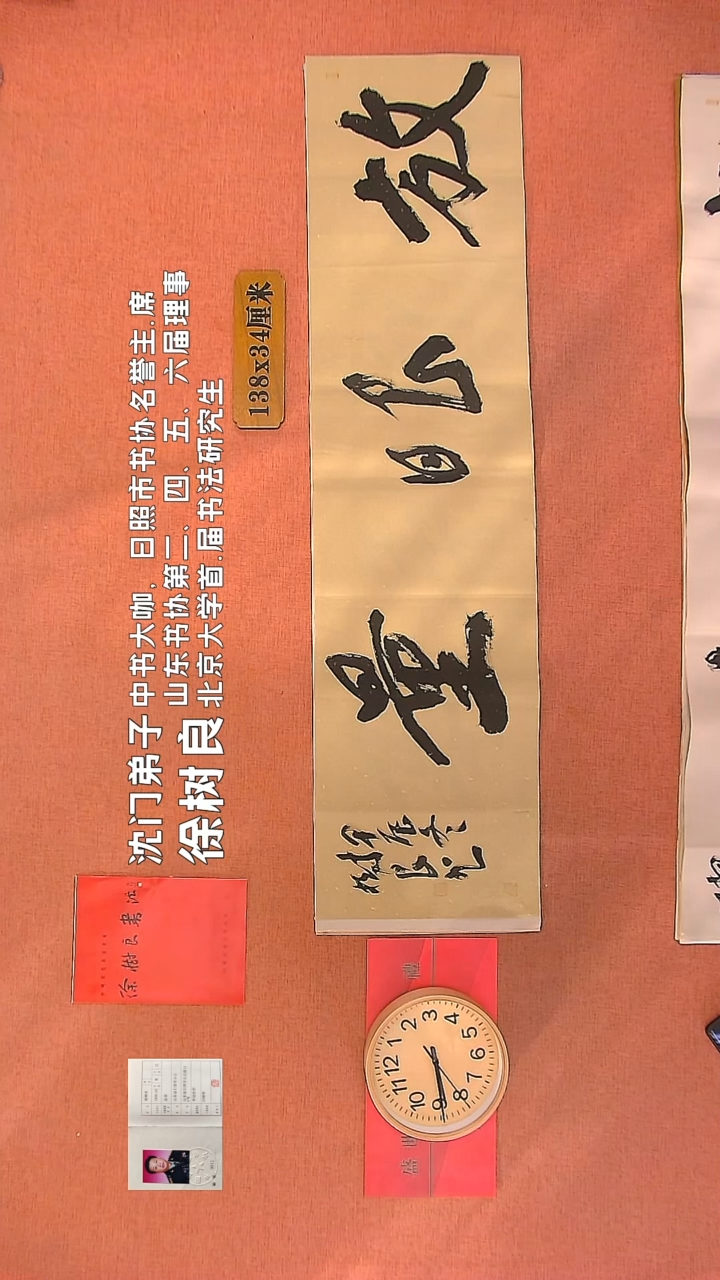 沈门弟子
徐树良
中书大咖，日照市书协名誉主.席
山东书协第二、四、五、六届理事
北京大学首.届书法研究生
138x34厘米
放眼量
徐樹良书法
12
1
2
3
4
5
6
7
8
9
10
11
盛世
禮